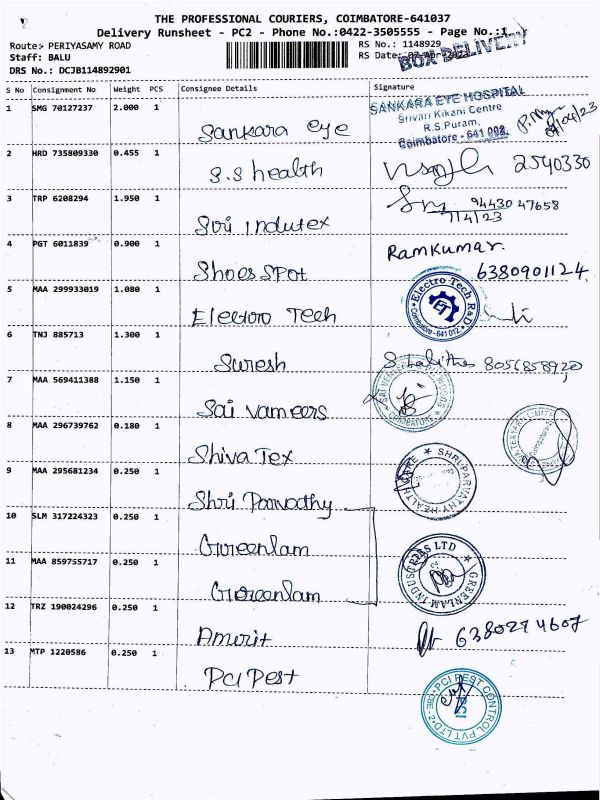 THE PROFESSIONAL COURIERS, COIMBATORE-641037
Delivery Runsheet - PC2 - Phone No.:0422-3505555 - Page No.:1
Route:> PERIYASAMY ROAD
RS No.: 1148929
BOX DELIVERY
Staff: BALU
RS Date: 07-Apr-2023
DRS No.: DCJB114892901
S No Consignment No Weight PCS Consignee Details Signature
1 SMG 70127237 2.000 1 Sankara eye
SANKARA EYE HOSPITAL
Srivari Kikani Centre
R.S.Puram,
Coimbatore - 641 002.
2 HRD 735809330 0.455 1 S.S health 2540330
3 TRP 6208294 1.950 1 Sri indutex 94430 47658
7/4/23
4 PGT 6011839 0.900 1 Shoes Spot Ramkumar.
6380901124.
5 MAA 299933019 1.080 1 Electro Tech
Electro Tech R&D
Coimbatore-641 012.
ET
6 TNJ 885713 1.300 1 Suresh 8056858920
7 MAA 569411388 1.150 1 Sai vameers
COIMBATORE
8 MAA 296739762 0.180 1 Shiva Tex
9 MAA 295681234 0.250 1 Shri Parvathy
SHRI PARVATHY HEALTH CARE
10 SLM 317224323 0.250 1 Greenlam
11 MAA 859755717 0.250 1 Greenlam
GREENLAM INDUSTRIES LTD
12 TRZ 190024296 0.250 1 Amrit 6380274607
13 MTP 1220586 0.250 1 Pci Pest
PCI PEST CONTROL PVT LTD